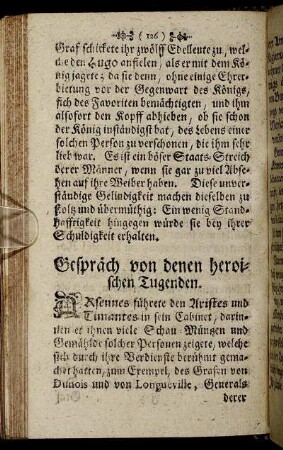 (126)
Graf schickete ihr zwölff Edelleute zu, wel-
che den Hugo anfielen, als er mit dem Kö-
nig jagete; da sie denn, ohne einige Ehrer-
bietung vor der Gegenwart des Königs,
sich des Favoriten bemächtigten, und ihm
alsofort den Kopff abhieben, ob sie schon
der König inständigst bat, des Lebens einer
solchen Person zu verschonen, die ihm sehr
lieb war. Es ist ein böser Staats-Streich
derer Männer, wenn sie gar zu viel Absе-
hen auf ihre Weiber haben. Diese unver-
ständige Gelindigkeit machen dieselben zu
stoltz und übermüthig: Ein wenig Stand-
hafftigkeit hingegen würde sie bey ihrer
Schuldigkeit erhalten.
Gespräch von denen heroi-
schen Tugenden.
ARsennes führete den Aristes und
Timantes in sein Cabinet, darin-
nen er ihnen viele Schau-Müntzen und
Gemählde solcher Personen zeigete, welche
sich durch ihre Verdienste berühmt gema-
chet hatten, zum Exempel, des Grafen von
Dunois und von Longueville, Generals
derer